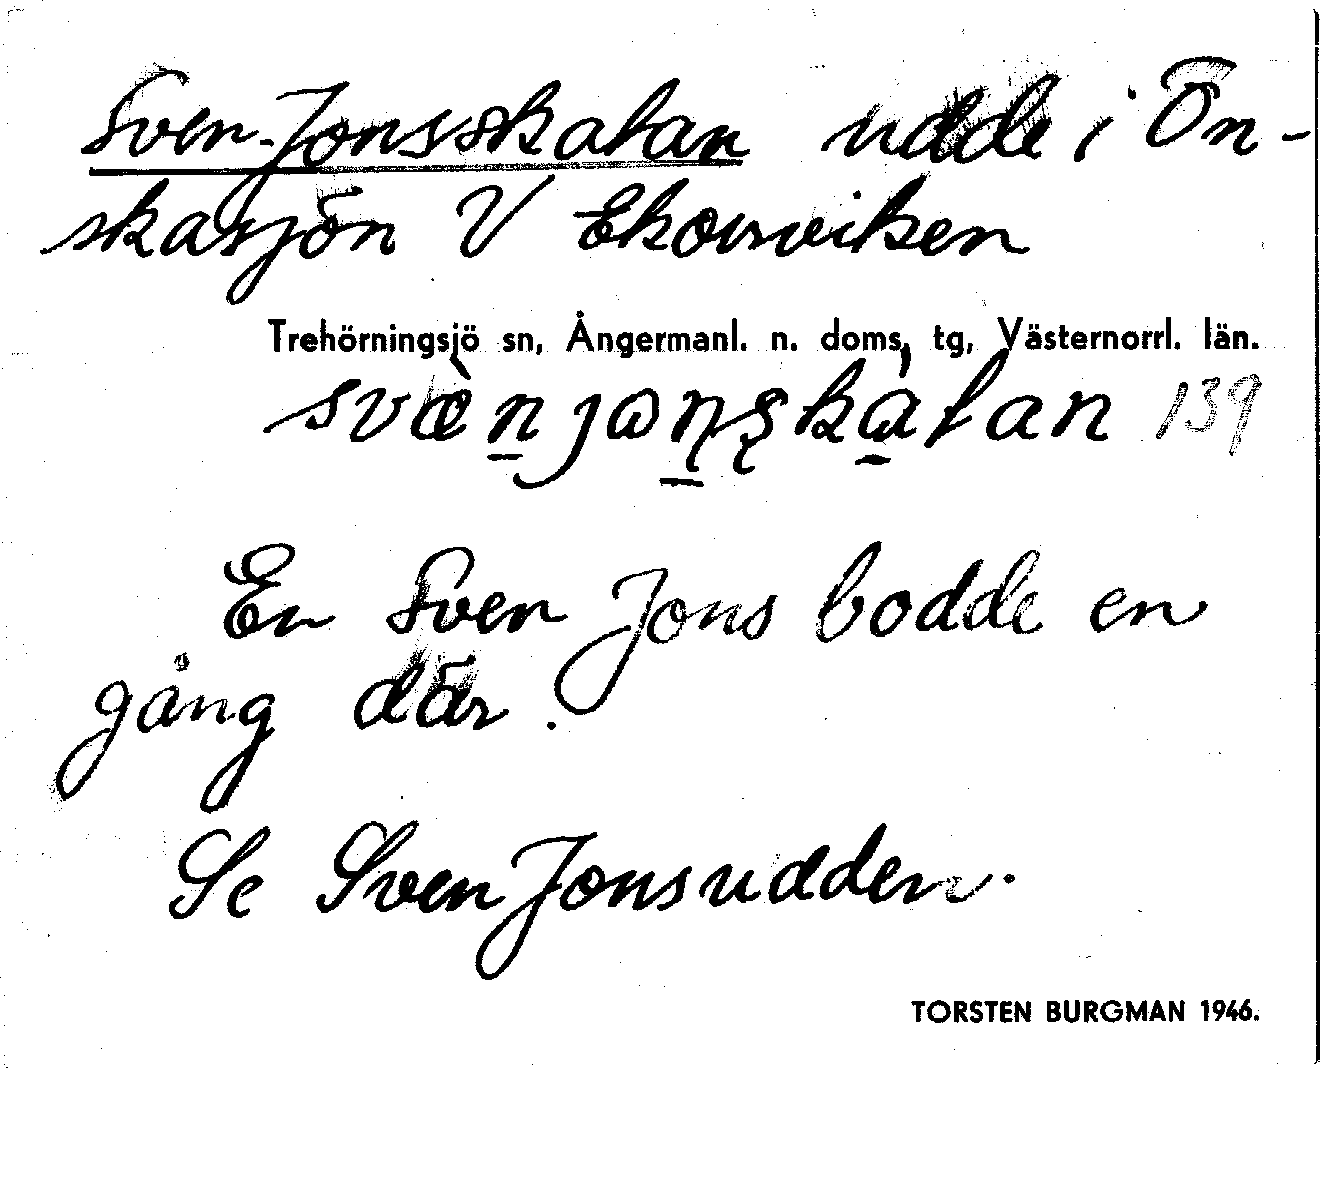 Sven-Jonsskatan udde i Ön-
skasjön V Ekorrviken
Trehörningsjö sn, Ångermanl. n. doms, tg, Västernorrl. län.
139
En Sven Jons bodde en
gång där.
Se Sven Jonsudden.
TORSTEN BURGMAN 1946.